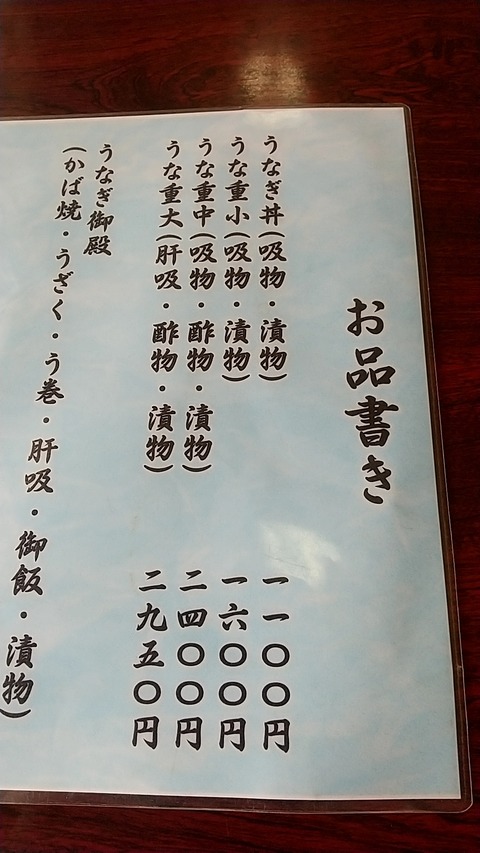 お品書き
うなぎ丼(吸物・漬物) 一一〇〇円
うな重小(吸物・漬物) 一六〇〇円
うな重中(吸物・酢物・漬物) 二四〇〇円
うな重大(肝吸・酢物・漬物) 二九五〇円
うなぎ御殿
(かば焼・うざく・う巻・肝吸・御飯・漬物)